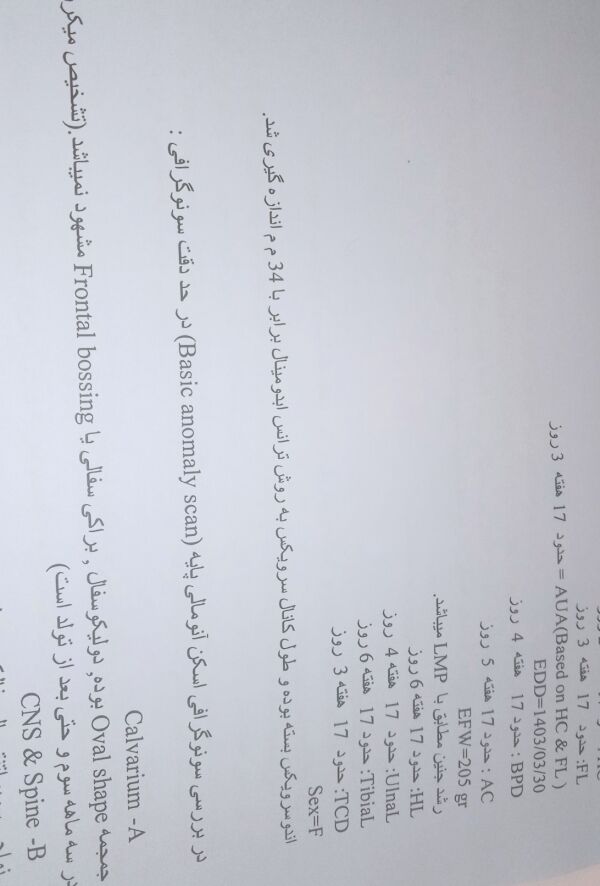 FL: حدود 17 هفته 3 روز
AUA(Based on HC & FL ) = حدود 17 هفته 3 روز
EDD=1403/03/30
BPD : حدود 17 هفته 4 روز
AC : حدود 17 هفته 5 روز
EFW=205 gr
رشد جنین مطابق با LMP میباشد.
HL: حدود 17 هفته 6 روز
UlnaL: حدود 17 هفته 4 روز
TibiaL: حدود 17 هفته 6 روز
TCD: حدود 17 هفته 3 روز
Sex=F
اندوسرویکس بسته بوده و طول کانال سرویکس به روش ترانس ابدومینال برابر با 34 م م اندازه گیری شد.
در بررسی سونوگرافی اسکن آنومالی پایه (Basic anomaly scan) در حد دقت سونوگرافی :
A- Calvarium
جمجمه Oval shape بوده, دولیکوسفال , براکی سفالی یا Frontal bossing مشهود نمیباشد.(تشخیص میکر
در سه ماهه سوم و حتی بعد از تولد است)
B- CNS & Spine